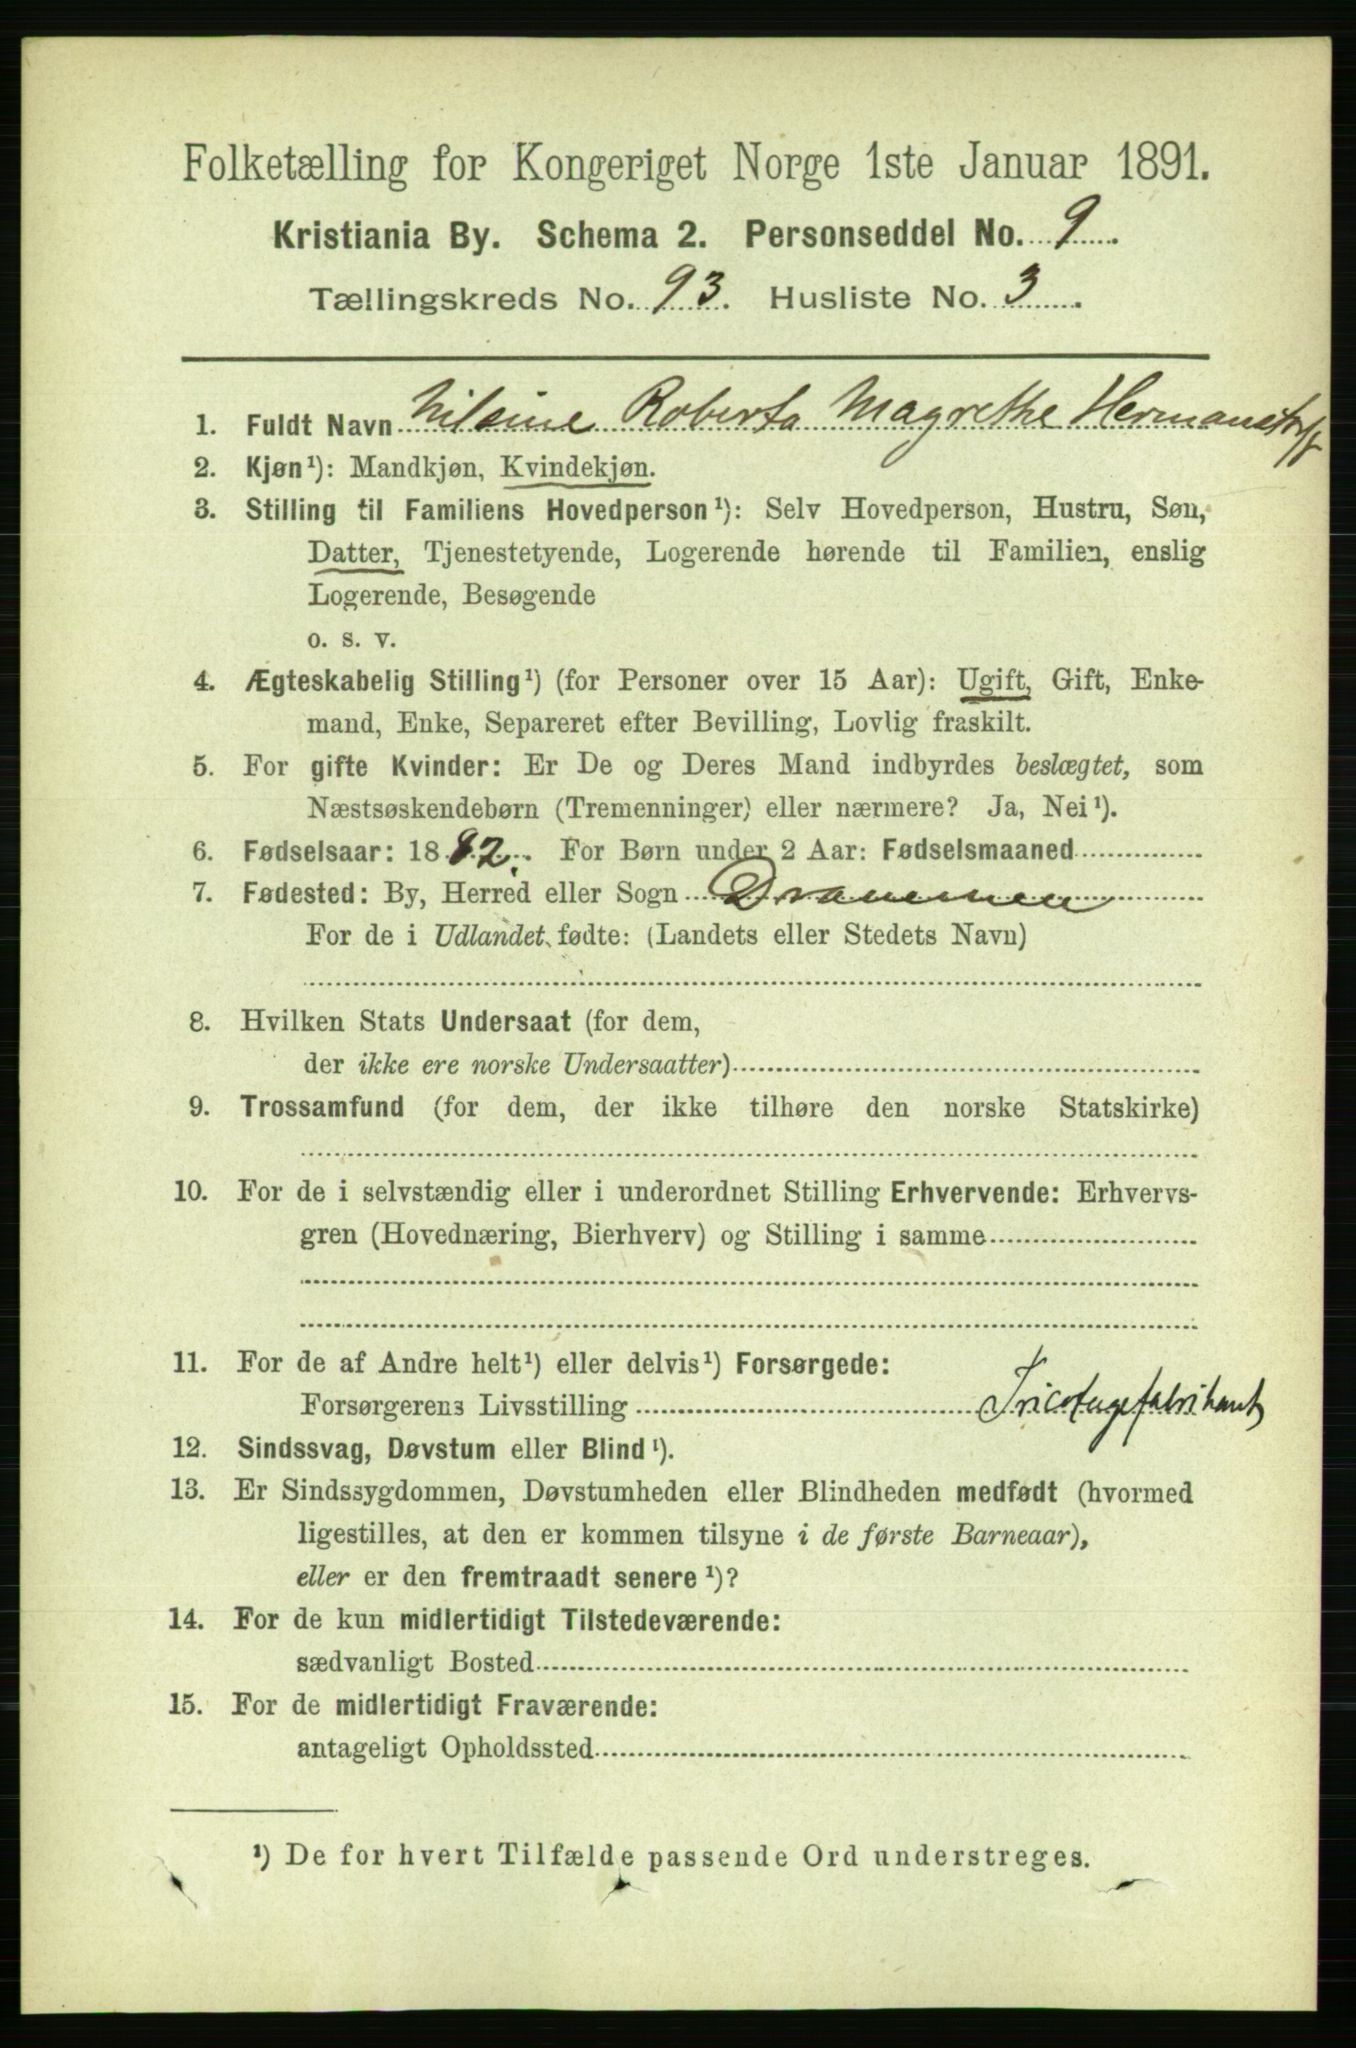 Folketælling for Kongeriget Norge 1ste Januar 1891.
Kristiania By. Schema 2. Personseddel No. 9.
Tællingskreds No. 93. Husliste No. 3.
1. Fuldt Navn Nilsine Roberta Magrethe Hermanstorff
2. Kjøn¹): Mandkjøn, Kvindekjøn.
3. Stilling til Familiens Hovedperson¹): Selv Hovedperson, Hustru, Søn,
Datter, Tjenestetyende, Logerende hørende til Familien, enslig
Logerende, Besøgende
o. s. v.
4. Ægteskabelig Stilling¹) (for Personer over 15 Aar): Ugift, Gift, Enke-
mand, Enke, Separeret efter Bevilling, Lovlig fraskilt.
5. For gifte Kvinder: Er De og Deres Mand indbyrdes beslægtet, som
Næstsøskendebørn (Tremenninger) eller nærmere? Ja, Nei¹).
6. Fødselsaar: 1882. For Børn under 2 Aar: Fødselsmaaned
7. Fødested: By, Herred eller Sogn Drammen
For de i Udlandet fødte: (Landets eller Stedets Navn)
8. Hvilken Stats Undersaat (for dem,
der ikke ere norske Undersaatter)
9. Trossamfund (for dem, der ikke tilhøre den norske Statskirke)
10. For de i selvstændig eller i underordnet Stilling Erhvervende: Erhvervs-
gren (Hovednæring, Bierhverv) og Stilling i samme
11. For de af Andre helt¹) eller delvis¹) Forsørgede:
Forsørgerens Livsstilling Tricotagefabrikant
12. Sindssvag, Døvstum eller Blind¹).
13. Er Sindssygdommen, Døvstumheden eller Blindheden medfødt (hvormed
ligestilles, at den er kommen tilsyne i de første Barneaar),
eller er den fremtraadt senere¹)?
14. For de kun midlertidigt Tilstedeværende:
sædvanligt Bosted
15. For de midlertidigt Fraværende:
antageligt Opholdssted
¹) De for hvert Tilfælde passende Ord understreges.